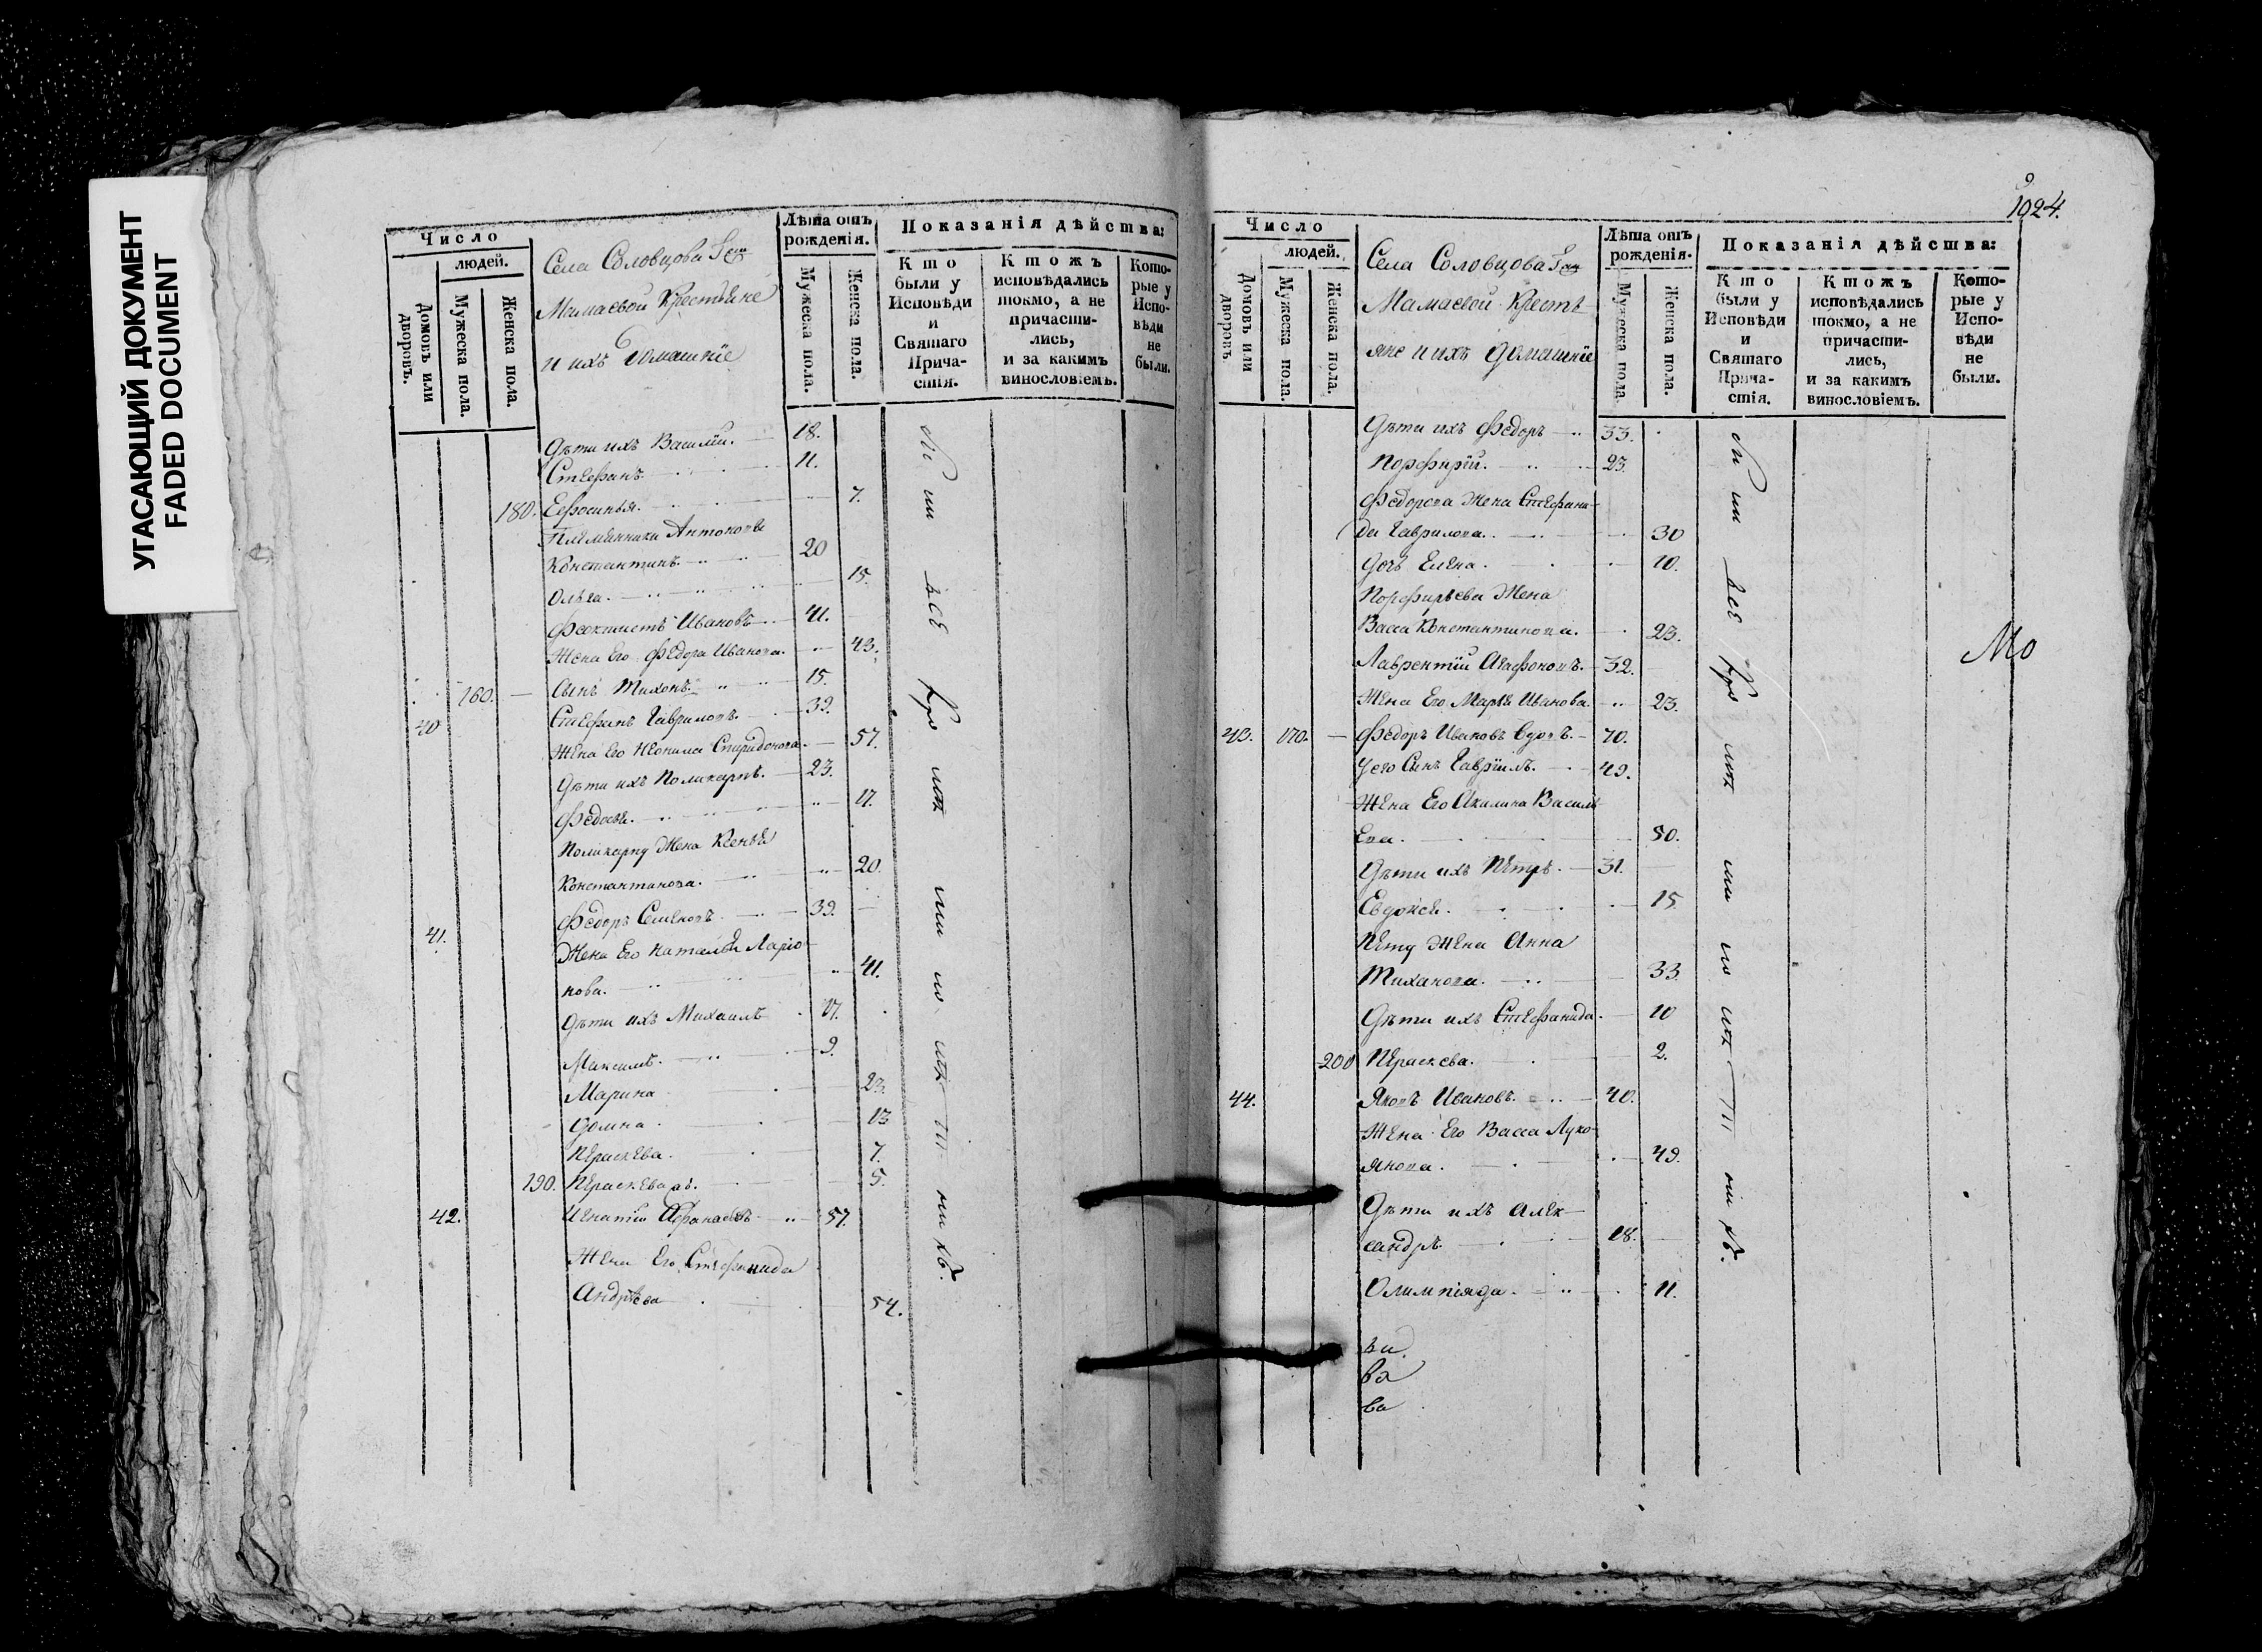 УГАСАЮЩИЙ ДОКУМЕНТ
FADED DOCUMENT
Число
людей.
Домовъ или дворовъ.
Мужеска пола.
Женска пола.
Села Соловцова
Мамаевой Крестьяне
и ихъ домашніе
Лѣта отъ рожденія.
Мужеска пола.
Женска пола.
Показанія дѣйства:
Кто были у Исповѣди и Святаго Прича-стія.
Ктожъ исповѣдались токмо, а не причасти-лись, и за какимъ винословіемъ.
Кото-рые у Испо-вѣди не были.
Дѣти ихъ Василій. 18.
Стефанъ 11.
180. Ефросинья. 7.
Племянники Антоновы
Константинъ. 20
Ольга. 15.
Феоктистъ Ивановъ 41.
Жена Его Федора Иванова. 43.
160. Сынъ Тихонъ. 15.
40 Стефанъ Гавриловъ. 39.
Жена Его Неонила Спиридонова. 57.
Дѣти ихъ Поликарпъ. 23.
Федосья. 17.
Поликарпу Жена Ксенья
Константинова. 20.
41. Федоръ Семеновъ. 39.
Жена Его Наталья Ларіо
нова. 41.
Дѣти ихъ Михаилъ 17.
Максимъ. 9.
Марина 23.
Домна. 13
Пераскева. 7.
190. Пераскева 5.
42. Игнатій Афанасьевъ 57.
Жена Его Стефанида
Андрѣева 54.
9
1024.
Число
людей.
Домовъ или дворовъ.
Мужеска пола.
Женска пола.
Села Соловцова
Мамаевой Кресть
яне и ихъ домашніе
Лѣта отъ рожденія.
Мужеска пола
Женска пола.
Показанія дѣйства:
Кто были у Исповѣди и Святаго Прича-стія.
Ктожъ исповѣдались токмо, а не причасти-лись, и за какимъ винословіемъ.
Кото-рые у Испо-вѣди не были.
Дѣти ихъ Федоръ 33.
Порфирій. 23.
Федорова Жена Стефани
да Гаврилова. 30
Дочь Елена. 10.
Порфирьева Жена
Васса Константинова. 23.
Лаврентій Агафоновъ. 32.
Жена Его Марья Иванова. 23.
43. 170. Федоръ Ивановъ 70.
У него Сынъ Гавріилъ. 49.
Жена Его Акилина Василь
Ева. 50.
Дѣти ихъ Петръ. 31.
Евдокея. 15.
Петру Жена Анна
Тиханова. 33.
Дѣти ихъ Стефанида. 10
200 Пераскева. 2.
44. Яковъ Ивановъ. 40.
Жена Его Васса Луко
янова. 49.
Дѣти ихъ Алек
сандръ. 18.
Олимпіяда. 11.
ва
Мо